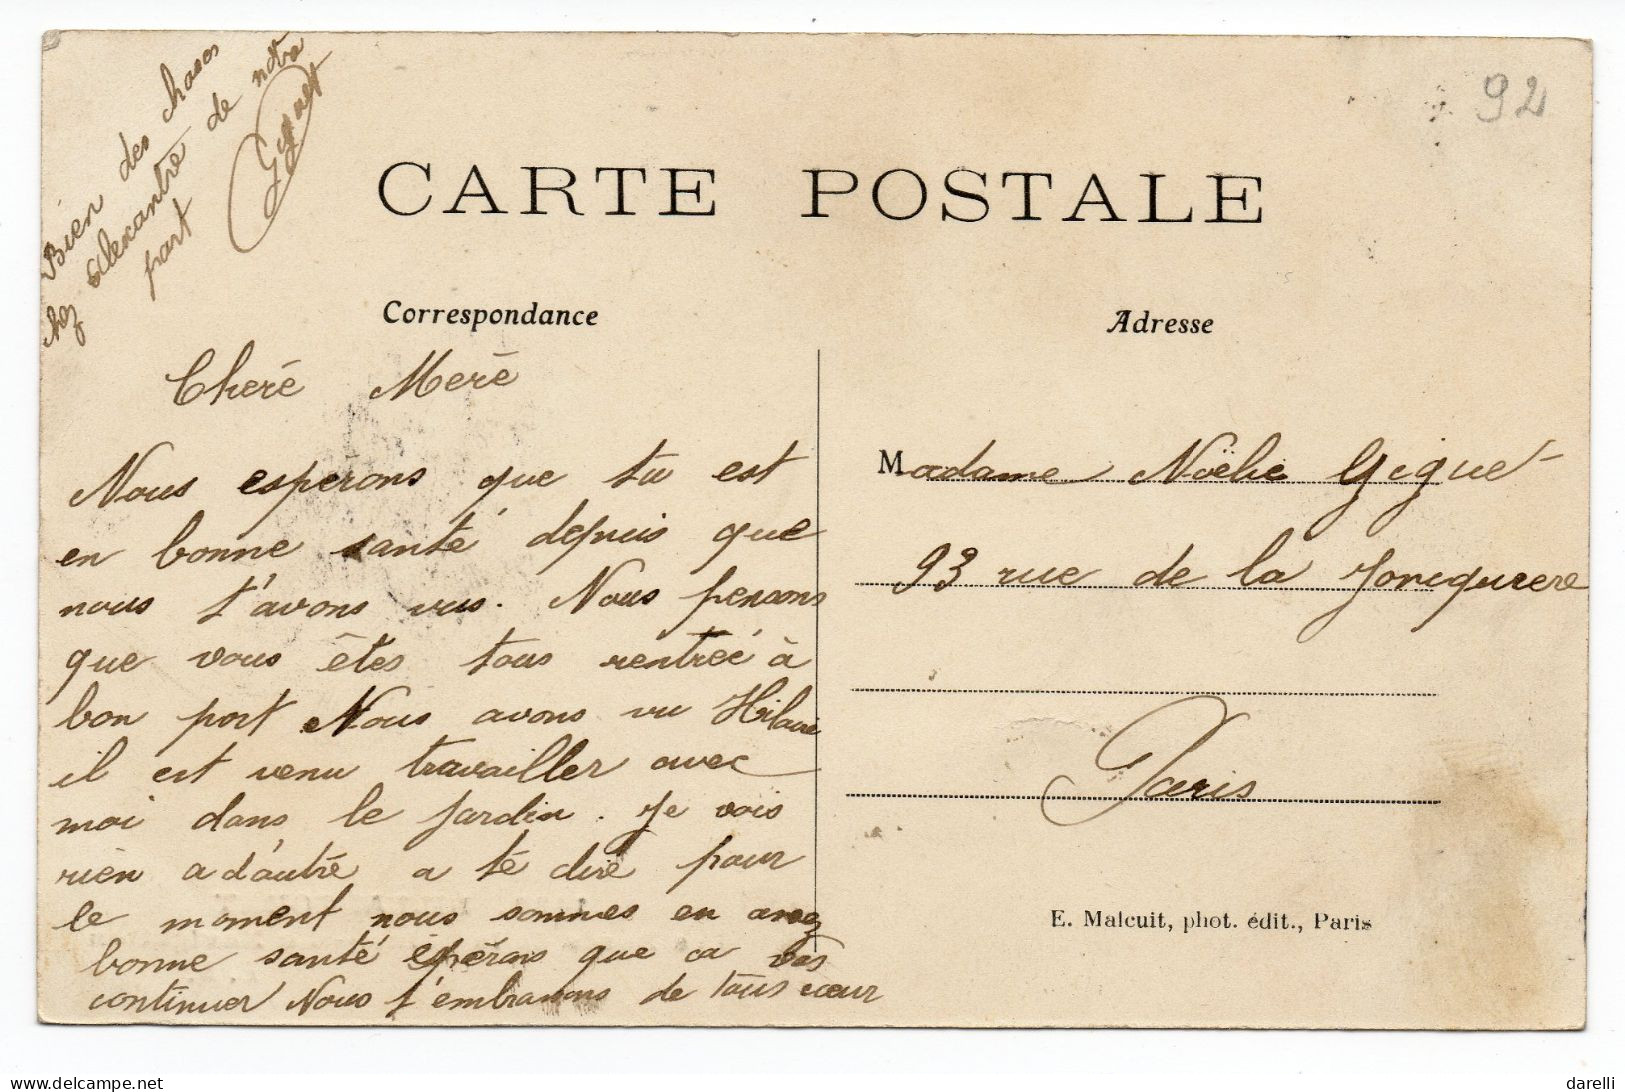 Bien des choses
chez Alexantre de notre
part
Giguet
92
CARTE POSTALE
Correspondance
Adresse
Cheré Meré
Nous esperons que tu est
en bonne santé depuis que
nous t'avons vus. Nous pensons
que vous êtes tous rentréé à
bon port Nous avons vu Hilaire
il est venu travailler avec
moi dans le jardin. Je vois
rien a d'autré a té diré pour
le moment nous sommes en assez
bonne santé éspérons que ca vas
continuer Nous t'embrassons de tous cœur
Madame Noëlie Gigué
93 rue de la Jonquiere
Paris
E. Malcuit, phot. édit., Paris
darelli @ delcampe.net